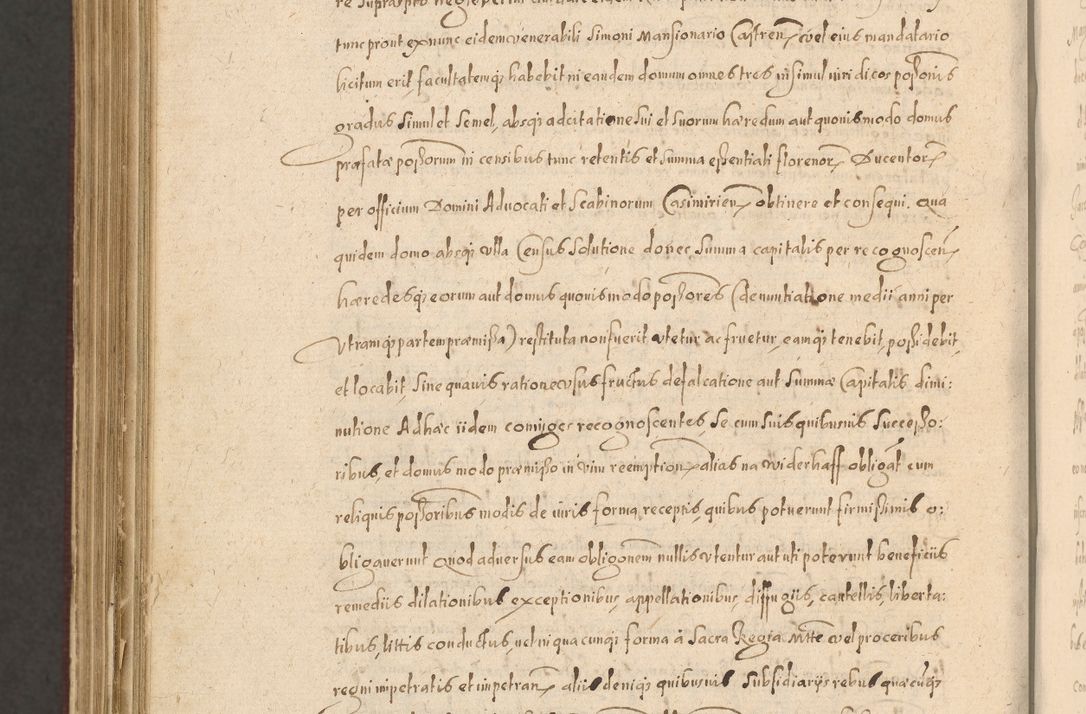 tunc prout ex nunc eidem venerabili Simoni Mansionario Castren, vel eius mandatario
licitum erit, facultatemq3 habebit in eandem domum omnes tres insimul iuridicos possonis
gradus simul et semel, absq3 adcitatione sui et suorum hæredum aut quonismodo domus
præfatæ possorum in censibus tunc retentis et summa essentiali florenor, Ducentor
per officium Domini Advocati et Scabinorum Casimirien, obtinere et consequi. Qua
quidem domo absq3 ulla Census solutione donec summa capitalis per recognoscen,
hæredesq3 eorum aut domus quouismodo possores (denuntiatione medii anni per
Utramq3 partem præmissa) restituta non fuerit utetur, ac fruetur, eamq3 tenebit, possidebit,
et locabit, sine quauis ratione usus fructus defalcatione aut summæ Capitalis dimi:
nutione Ad hæc iidem coniuges recognoscentes, se cum suis quibusuis successo:
ribus, et domus modo præmisso in vim reemption, alias na widerkaff obligat cum
reliquis possoribus modis de iuris forma receptis, quibus potuerunt firmissimis o:
bligauerunt Quod aduersus eam obligonem nullis utentur aut uti poterunt beneficiis
remediis dilationibus exceptionibus, appellationibus, diffugiis, cautellis, liberta:
tibus, littis conductus, uel in quacunq3 forma à Sacra Regia Mtte vel proceribus
regni impetratis et impetran, aliis deniq3 quibusuis subsidiarijs rebus quæcunq3